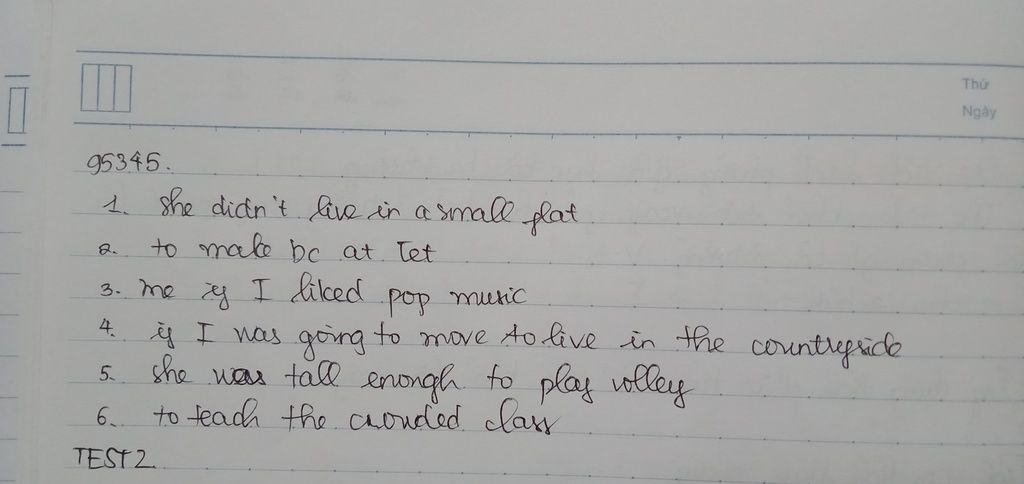 Thứ
Ngày
95345.
1. She didn't live in a small flat
2. to make bc at Tet
3. me if I liked pop music
4. if I was going to move to live in the countryside
5. She was tall enough to play volley
6. to teach the crowded class
TEST 2